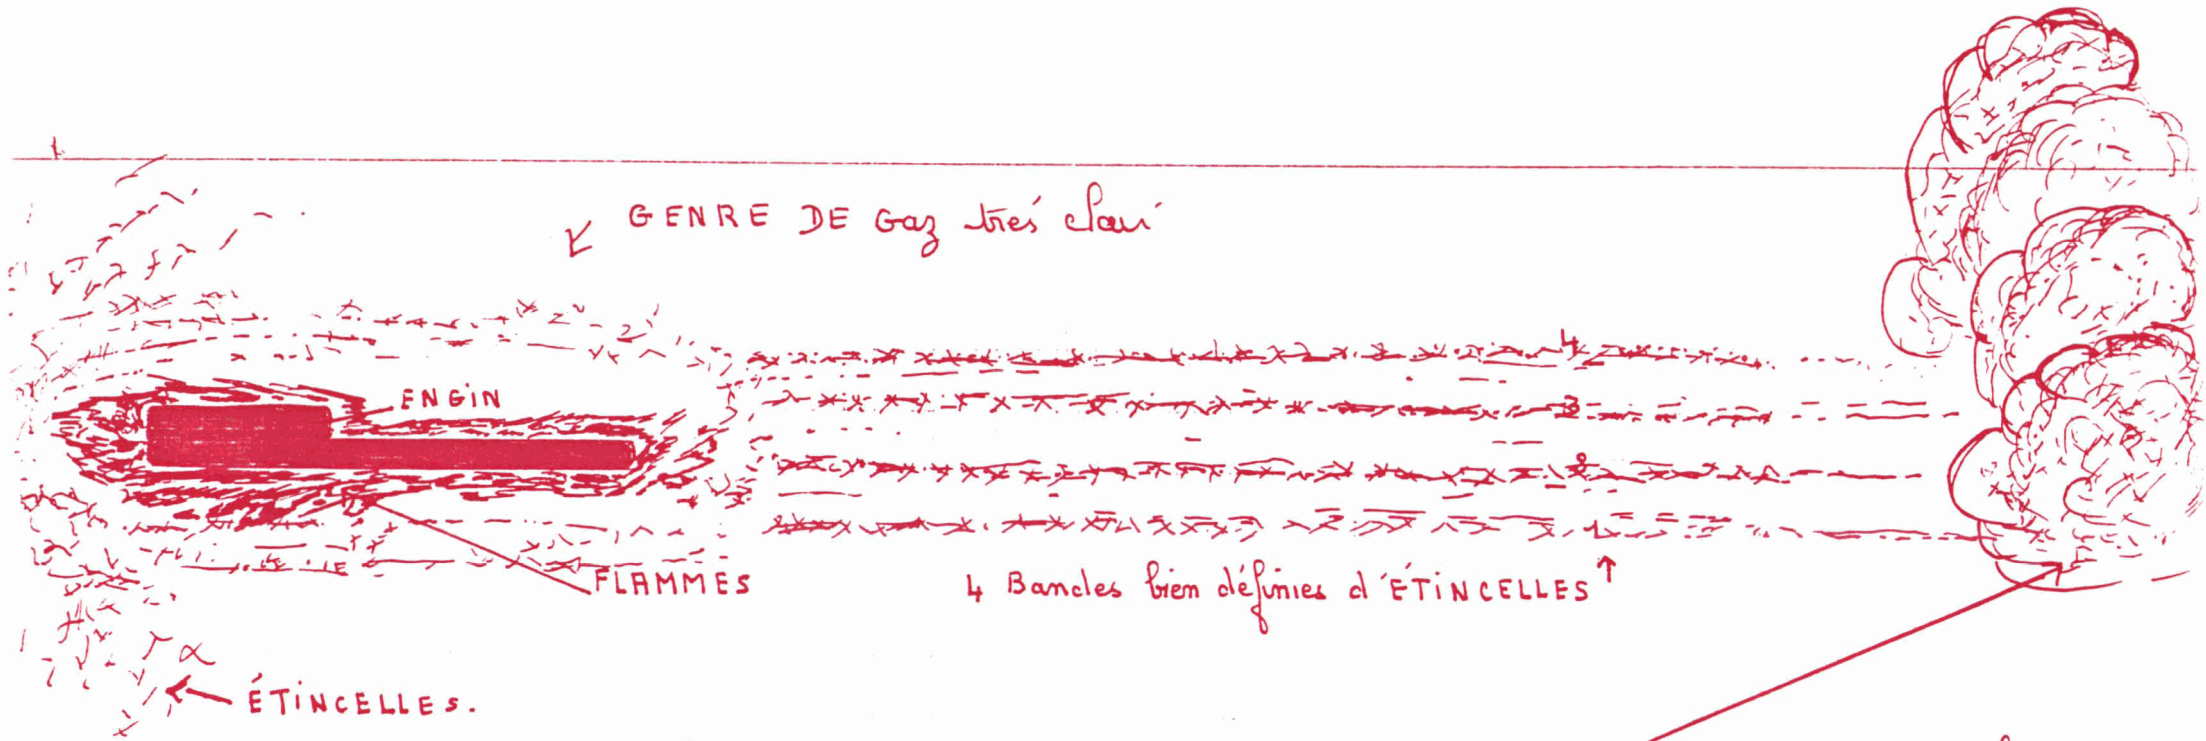 GENRE DE Gaz trés clair
ENGIN
4
3
2
1
FLAMMES
4 Bandes bien définies d'ÉTINCELLES
ÉTINCELLES.